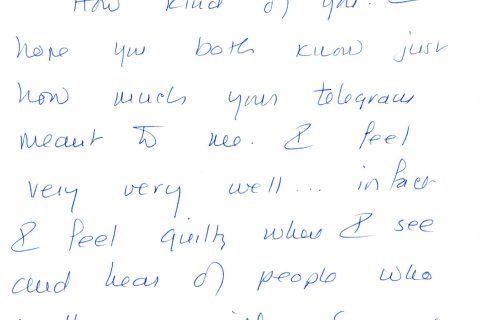 How kind of you. I
hope you both know just
how much your telegram
meant to me. I feel
very very well... in fact
I feel guilty when I see
and hear of people who